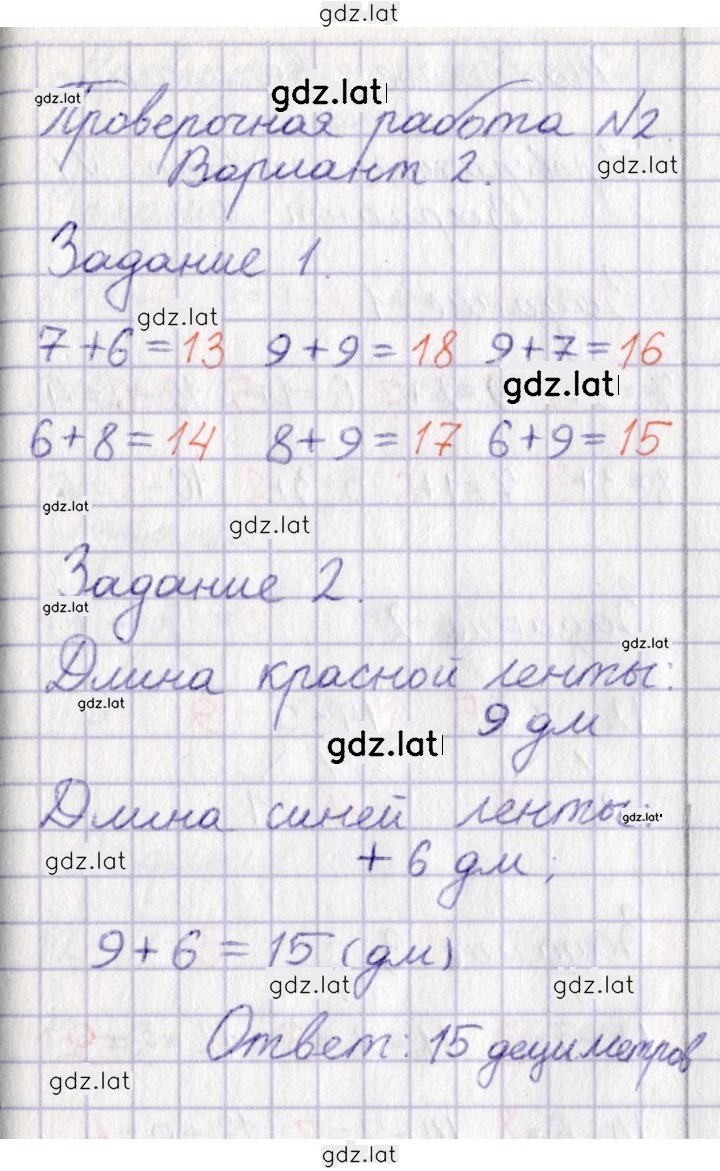 gdz.lat
gdz.lat
gdz.lat
Проверочная работа №2.
gdz.lat
Вариант 2.
Задание 1.
gdz.lat
7+6=13 9+9=18 9+7=16
gdz.lat
6+8=14 8+9=17 6+9=15
gdz.lat
gdz.lat
Задание 2.
gdz.lat
gdz.lat
Длина красной ленты:
gdz.lat
9 дм
gdz.lat
Длина синей ленты:
gdz.lat
gdz.lat
+ 6 дм;
9+6=15 (дм)
gdz.lat gdz.lat
Ответ: 15 дециметров
gdz.lat
gdz.lat